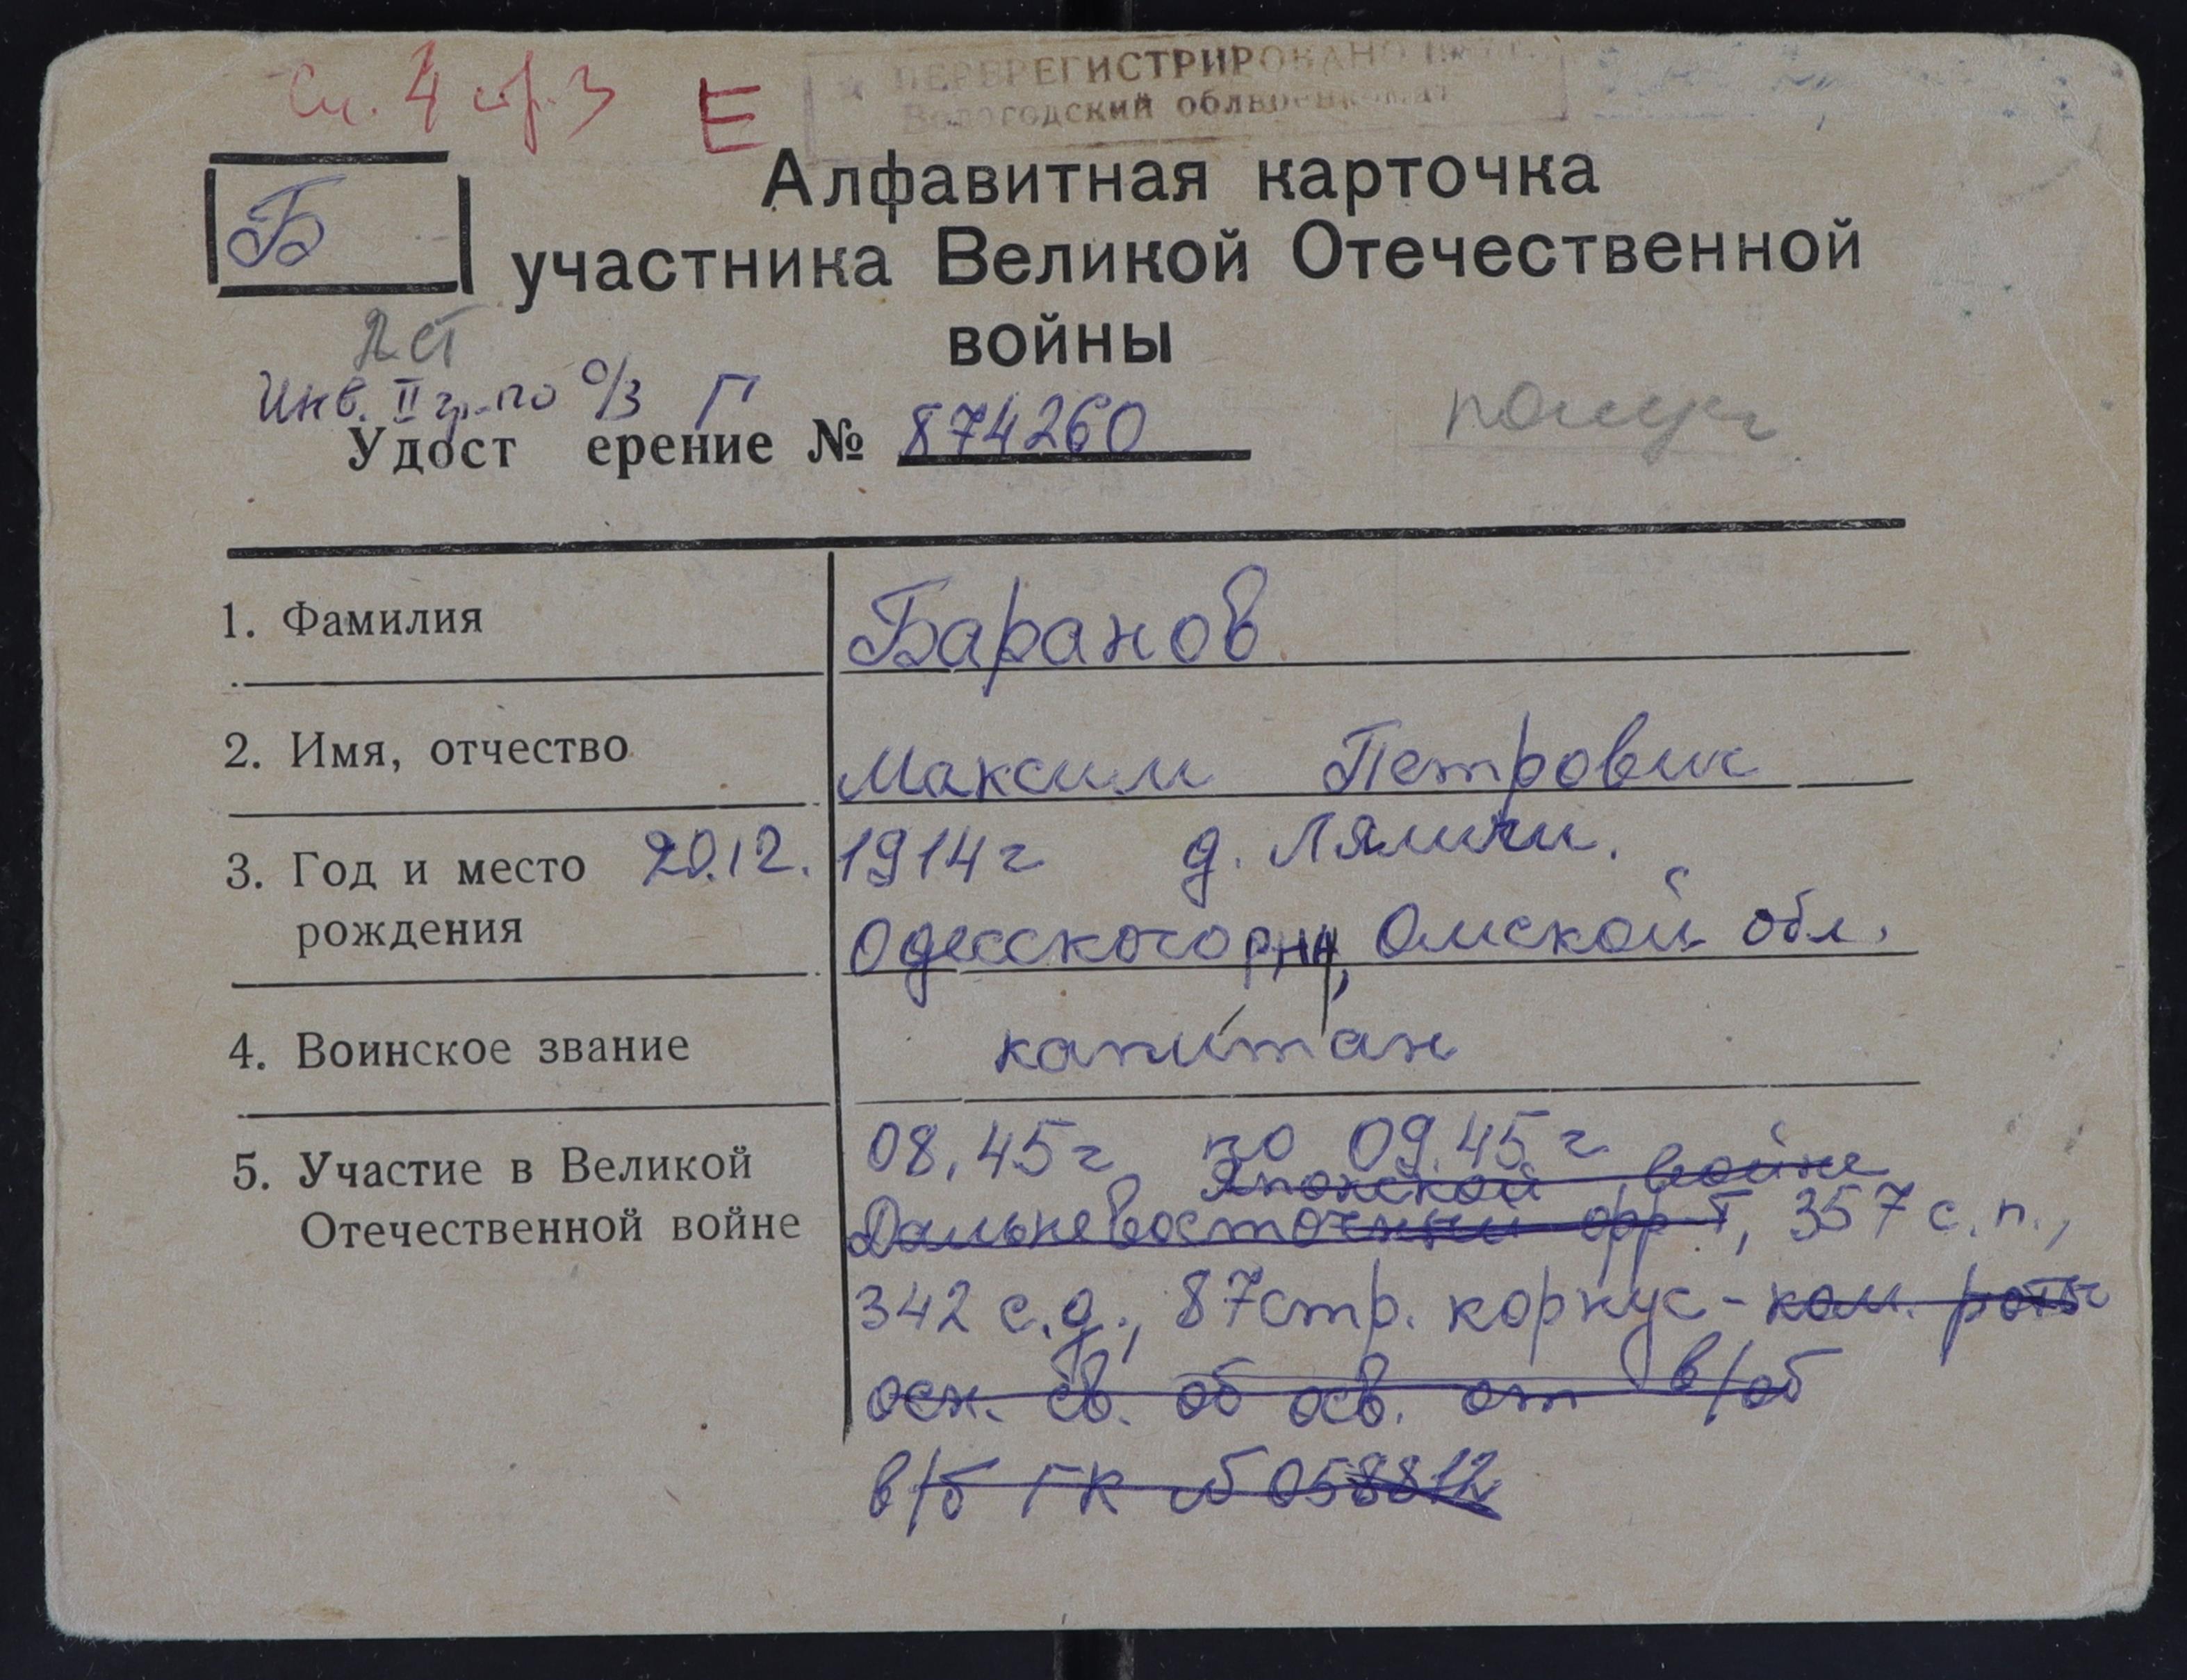 Сп. 4 стр. 3 Е
ПЕРЕРЕГИСТРИРОВАНО
Вологодский облвоенкомат
Алфавитная карточка
Б
участника Великой Отечественной
войны
2 ст
Инв. II гр. по о/з Г
Удост ерение № 874260
1. Фамилия Баранов
2. Имя, отчество Максим Петрович
3. Год и место 20.12. 1914 г д.
рождения Одесского рна, Омской обл.
4. Воинское звание капитан
5. Участие в Великой 08.45 г по 09.45 г
Японской войне
Отечественной войне Дальневосточный фр-т, 357 с.п.,
342 с.д., 87 стр. корпус - ком. роты
осн. св. об осв. от в/об
в/б ГК № 058812